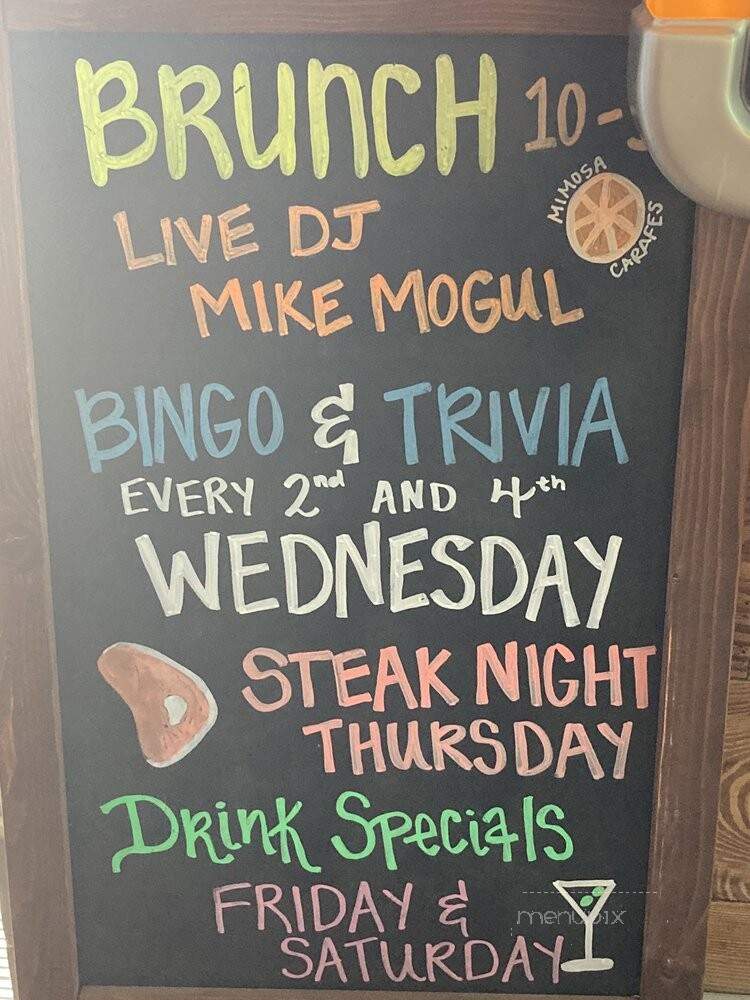 BRUNCH 10-
MIMOSA
CARAFES
LIVE DJ
MIKE MOGUL
BINGO & TRIVIA
EVERY 2nd AND 4th
WEDNESDAY
STEAK NIGHT
THURSDAY
Drink Specials
FRIDAY &
SATURDAY
menupix